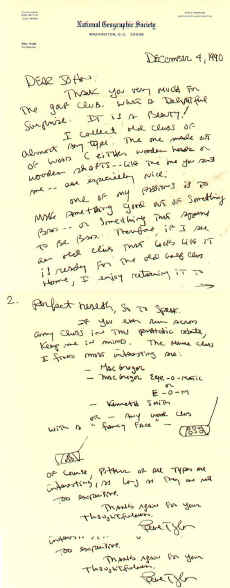 National Geographic Society
WASHINGTON, D.C. 20036
DECEMBER 4, 1990
DEAR
Thank you very much for
the golf club. What a Delightful
Surprise. It is a Beauty!
I collect old clubs of
almost any type. The one made out
of wood (either wooden heads or
wooden shafts -- like the one you sent
me -- are especially nice.
One of my passions is to
make something good out of something
Bad -- or something that appears
to be Bad. Therefore, if I see
an old club that looks like it
is ready for the old golf club
Home, I enjoy returning it to
2.
perfect health, so to speak.
If you ever run across
any clubs in this pathetic state,
keep me in mind. The name clubs
I find most interesting are:
- MacGregor
- MacGregor Eye-O-Matic
or
E-O-M
- Kenneth Smith
or - Any wood club
with a "Fancy Face"
Of course, putters of all types are
interesting, as long as they are not
too expensive.
Thanks again for your
thoughtfulness.
Pete Tyler
too expensive.
Thanks again for your
thoughtfulness.
Pete Tyler